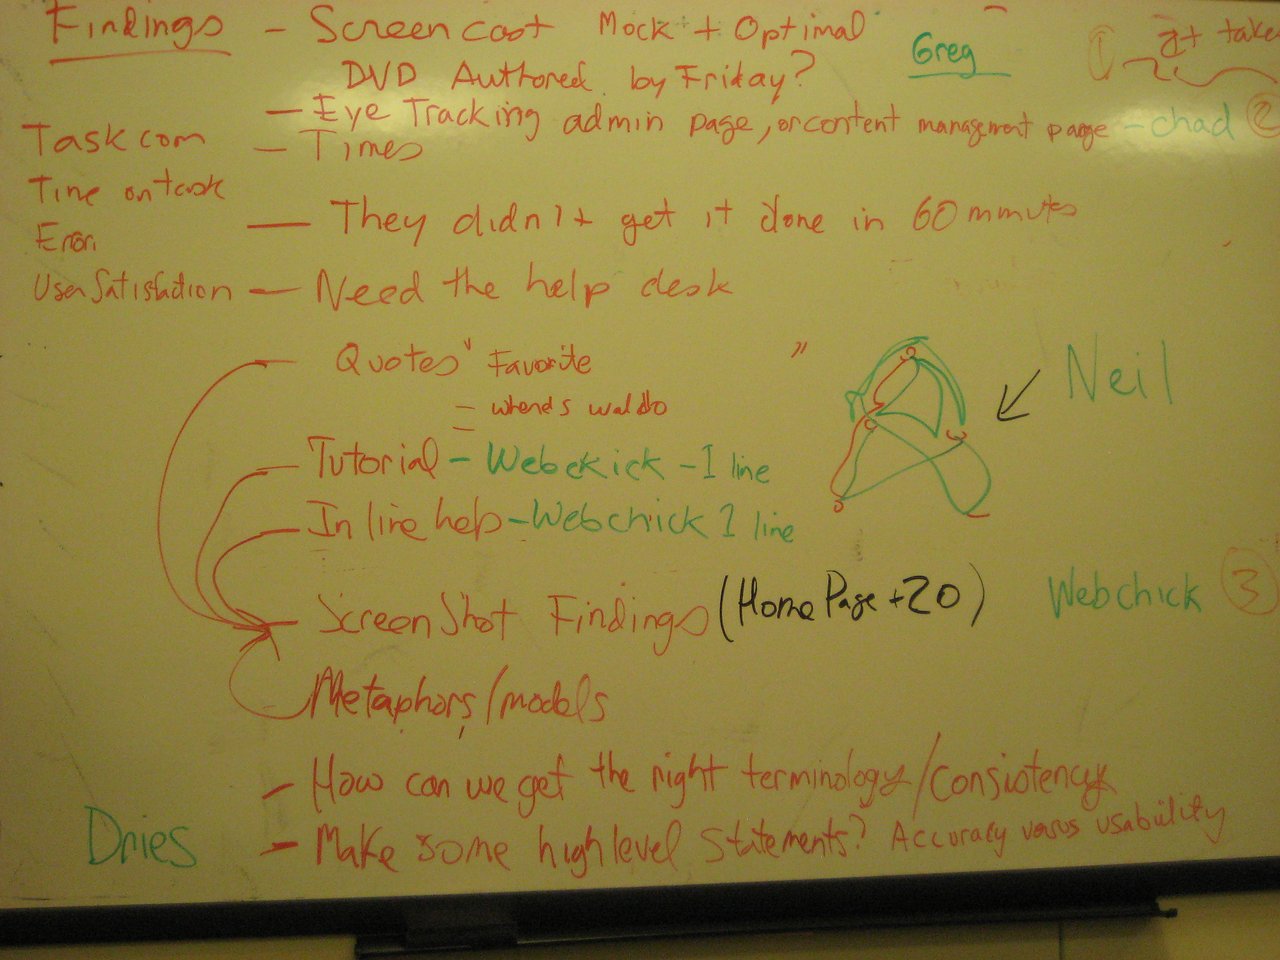 Findings - Screencast Mock + Optimal
DVD Authored by Friday?
Greg
1 it takes
- Eye Tracking admin page, or content management page - chad 2
Task com
- Times
Time on task
- They didn't get it done in 60 minutes
Error
User Satisfaction
- Need the help desk
Quotes " Favorite "
= where's waldo
Neil
Tutorial - Webckick - 1 line
Inline help - Webchick 1 line
- ScreenShot Findings (Home Page + 20) Webchick 3
Metaphors/models
- How can we get the right terminology/Consistency
Dries
- Make some high level statements? Accuracy versus usability